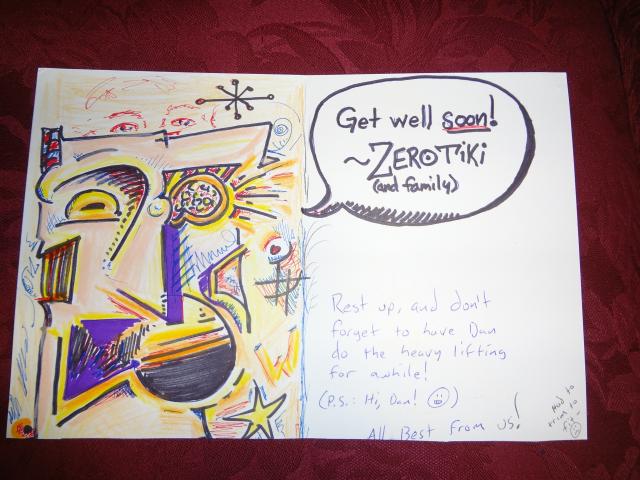 Get well soon!
~ZEROTiKi
(and family)
Rest up, and don't
forget to have Dan
do the heavy lifting
for awhile!
(P.S.: Hi, Dan! ☺)
All Best from us!
Had to
trim to
fit